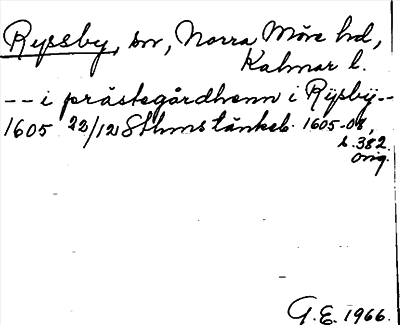 Ryssby, sn, Norra Möre hd,
Kalmar l.
-- i prästegårdhenn i Rÿsbÿ --
1605 22/12 Sthms tänkeb. 1605-08,
s. 382.
orig.
G.E. 1966.